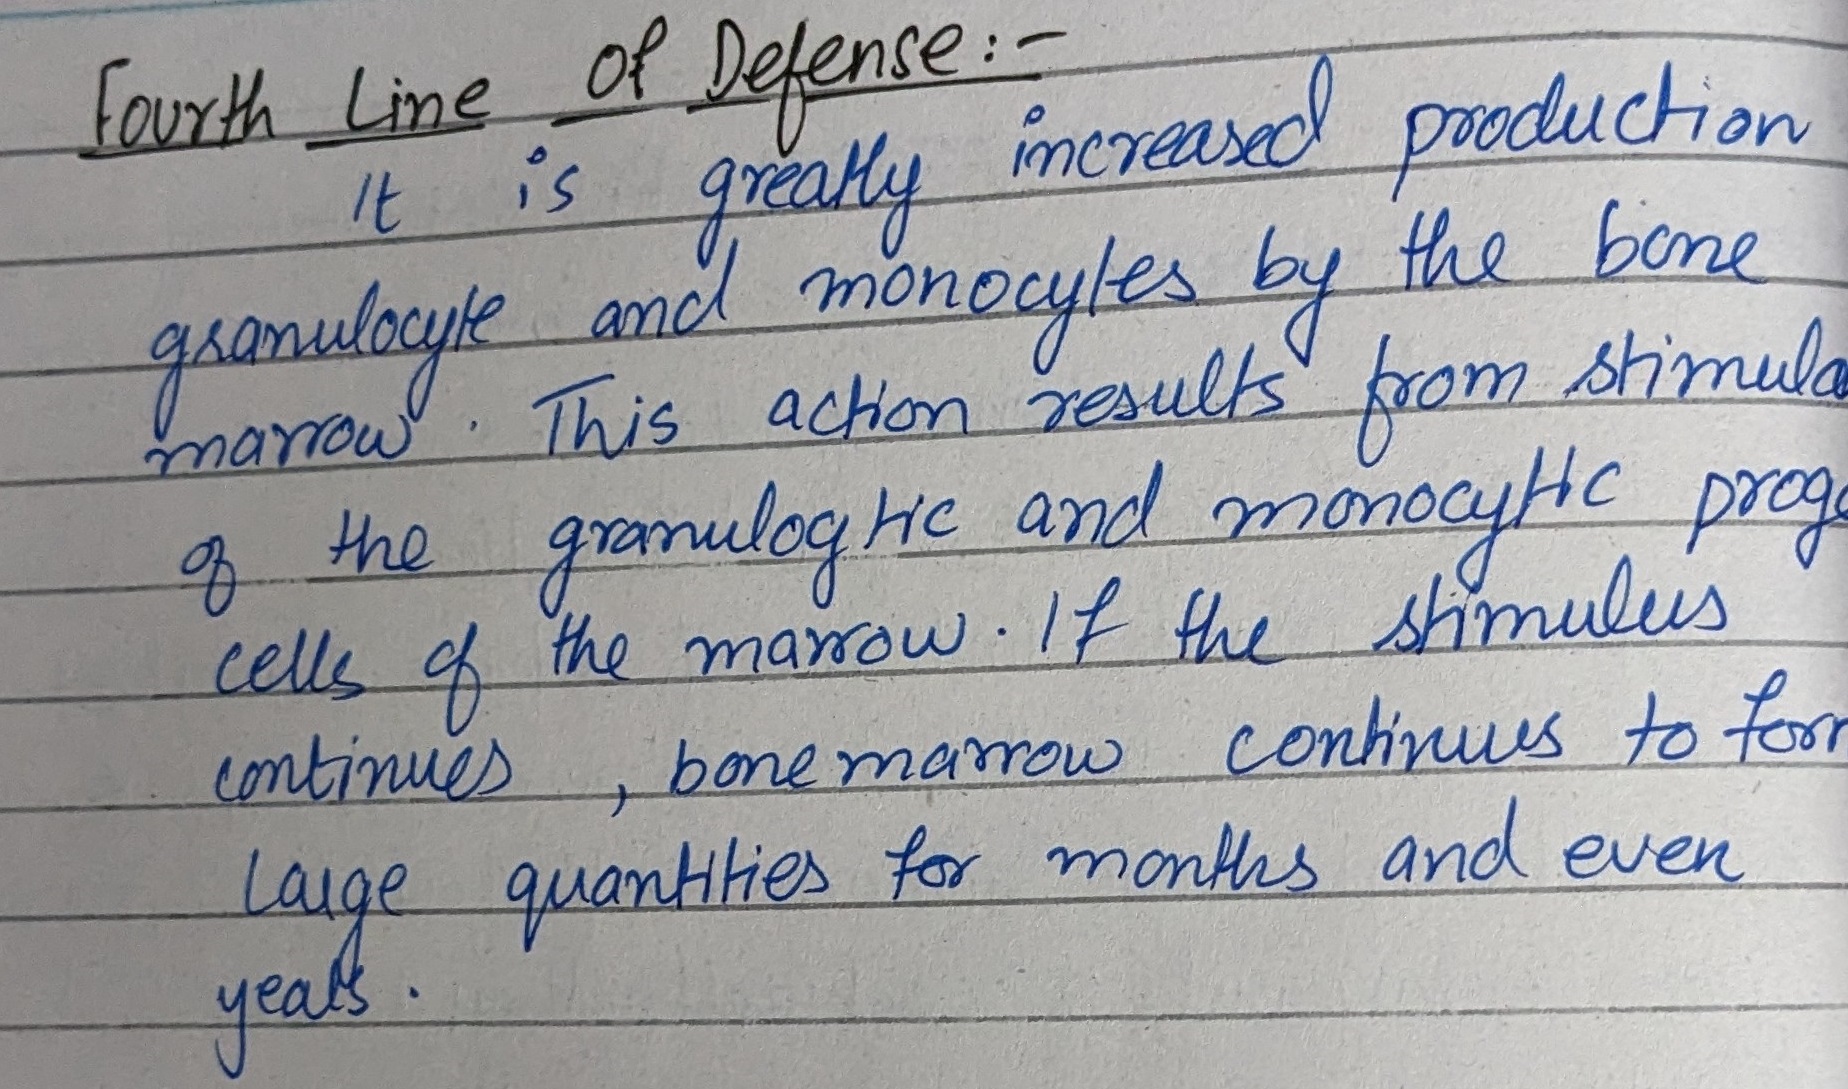 Fourth Line of Defense:-
It is greatly increased production
granulocyte and monocytes by the bone
marrow. This action results from stimula
of the granulogtic and monocytic proge
cells of the marrow. If the stimulus
continues, bone marrow continues to for
Large quantities for months and even
years.